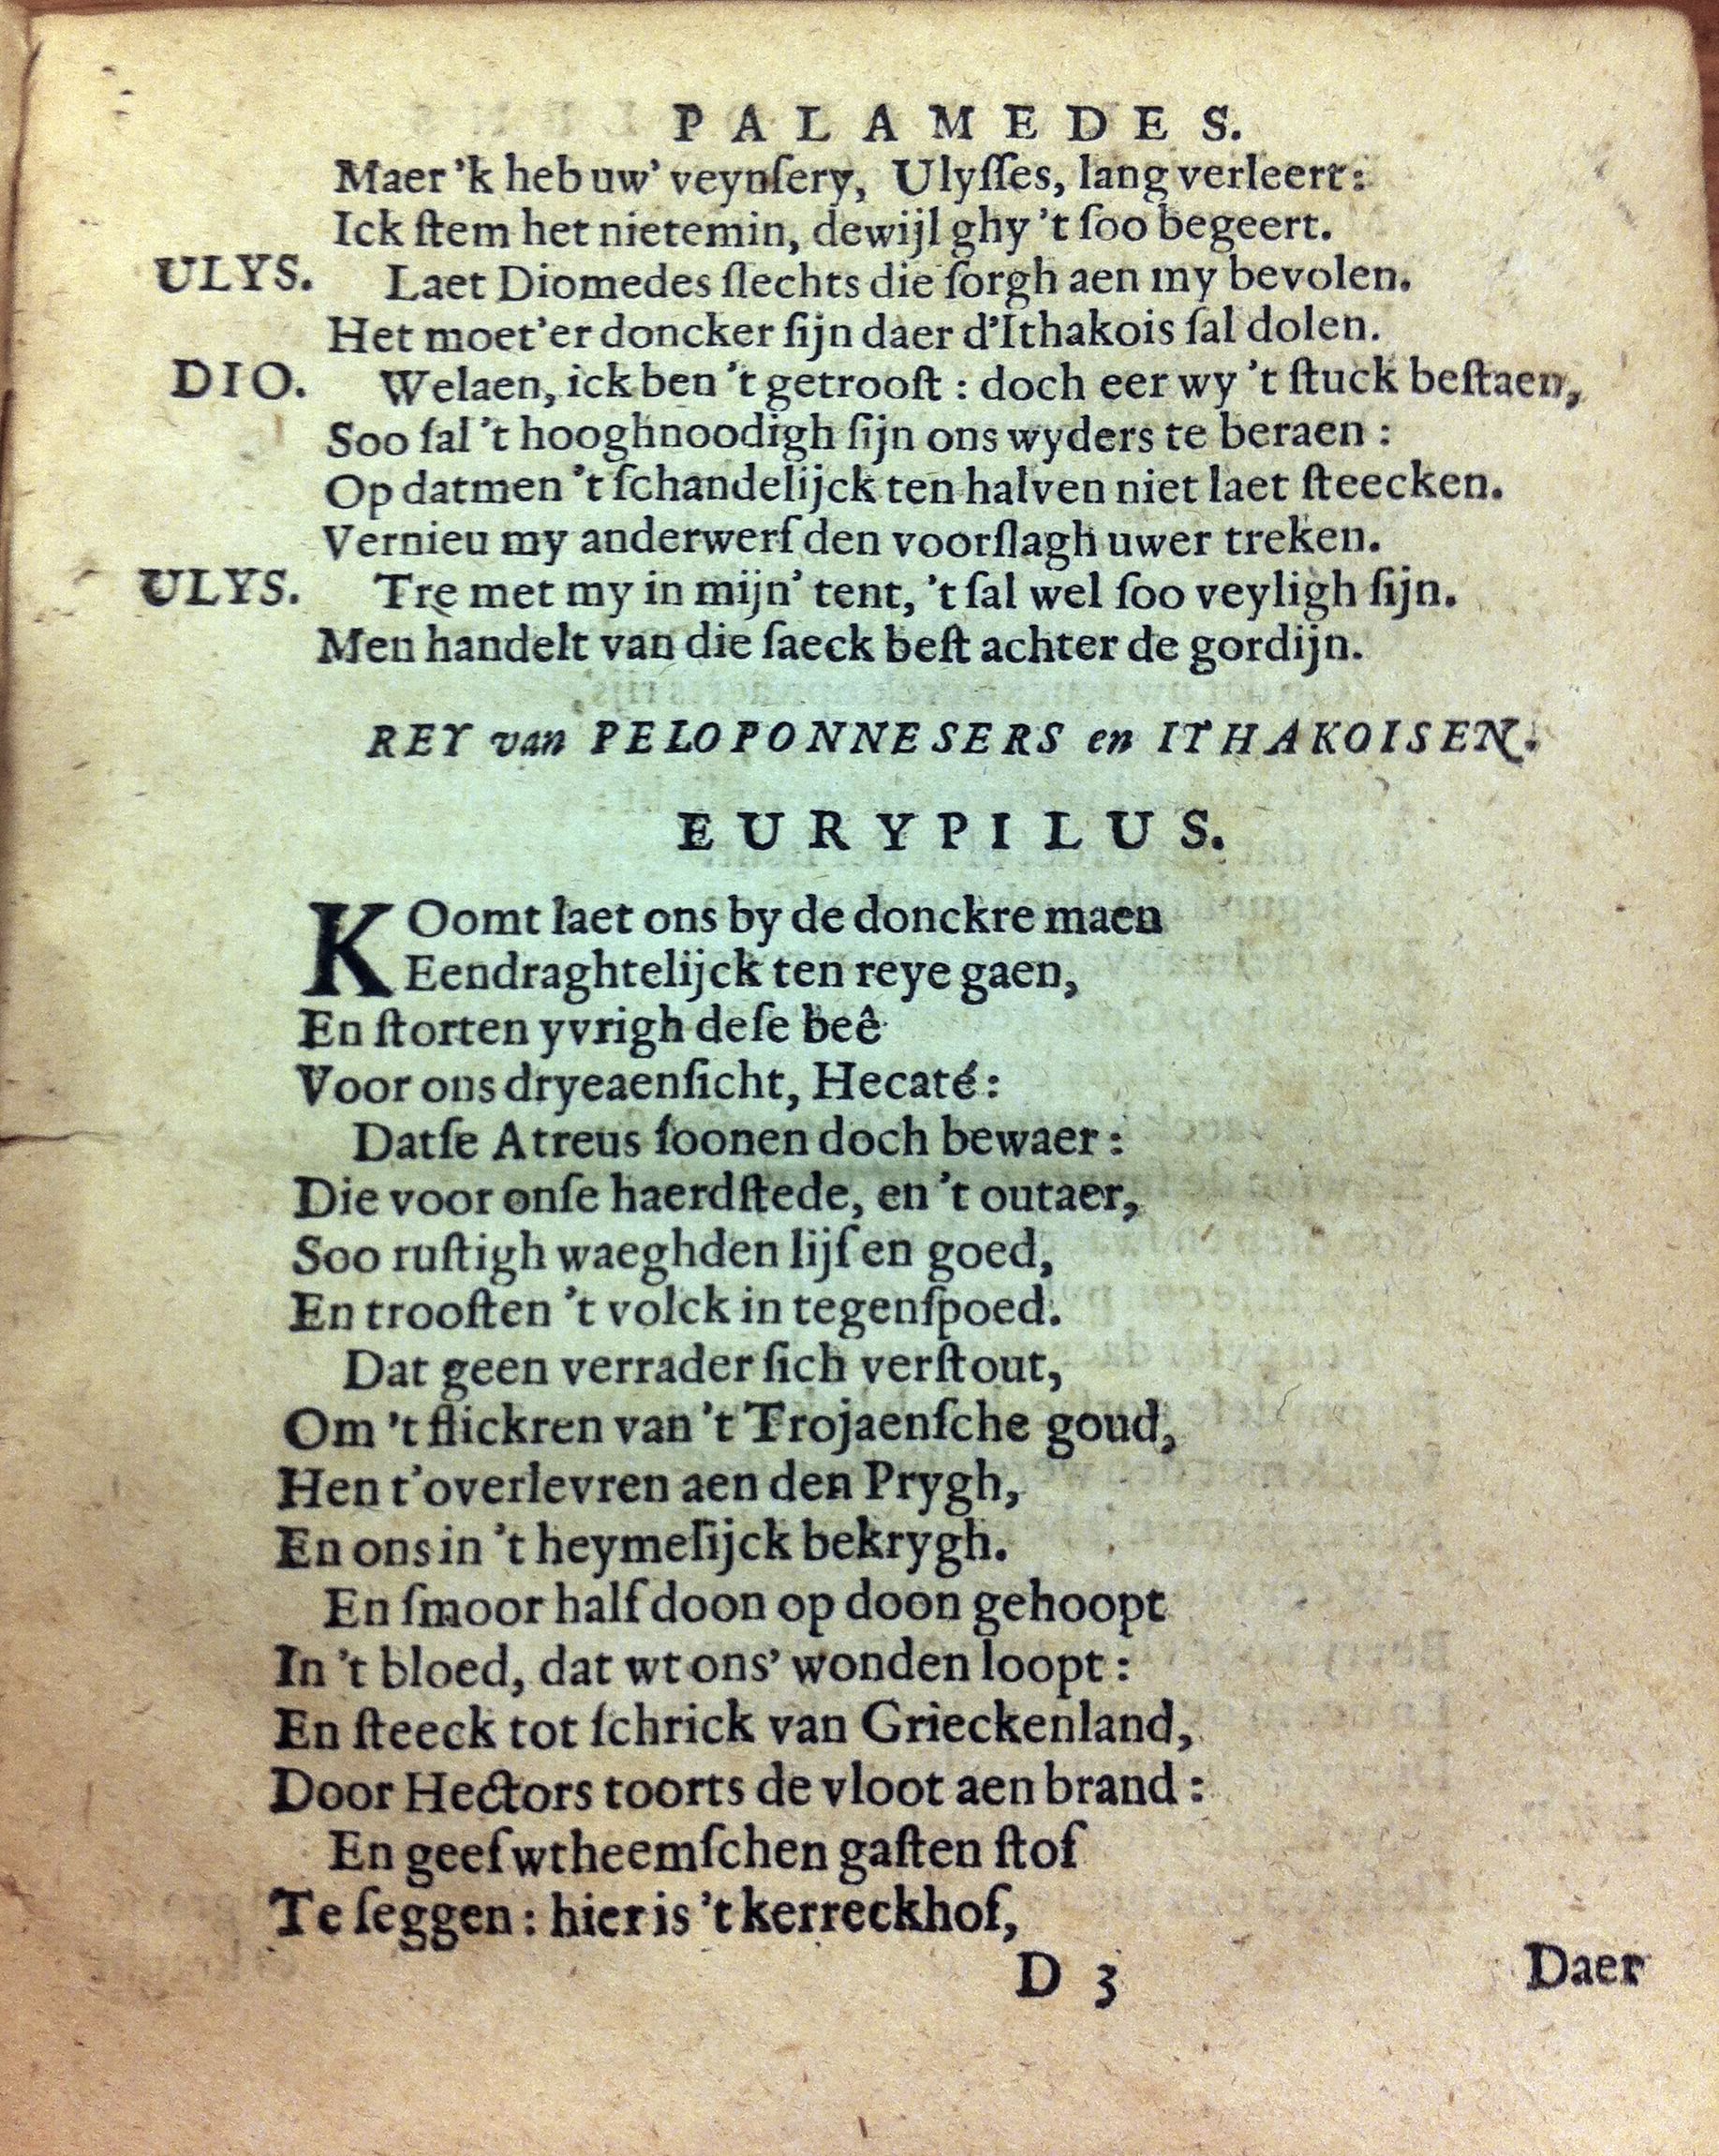 PALAMEDES.
Maer 'k heb uw' veynſery, Ulyſſes, lang verleert:
Ick ſtem het nietemin, dewijl ghy 't ſoo begeert.
ULYS. Laet Diomedes ſlechts die ſorgh aen my bevolen.
Het moet'er doncker ſijn daer d'Ithakois ſal dolen.
DIO. Welaen, ick ben 't getrooſt: doch eer wy 't ſtuck beſtaen,
Soo ſal 't hooghnoodigh ſijn ons wyders te beraen:
Op datmen 't ſchandelijck ten halven niet laet ſteecken.
Vernieu my anderwerf den voorſlagh uwer treken.
ULYS. Tre met my in mijn' tent, 't ſal wel ſoo veyligh ſijn.
Men handelt van die ſaeck beſt achter de gordijn.
REY van PELOPONNESERS en ITHAKOISEN.
EURYPILUS.
KOomt laet ons by de donckre maen
Eendraghtelijck ten reye gaen,
En ſtorten yvrigh deſe beê
Voor ons dryeaenſicht, Hecaté:
Datſe Atreus ſoonen doch bewaer:
Die voor onſe haerdſtede, en 't outaer,
Soo ruſtigh waeghden lijf en goed,
En trooſten 't volck in tegenſpoed.
Dat geen verrader ſich verſtout,
Om 't flickren van 't Trojaenſche goud,
Hen t'overlevren aen den Prygh,
En ons in 't heymelijck bekrygh.
En ſmoor half doon op doon gehoopt
In 't bloed, dat wt ons' wonden loopt:
En ſteeck tot ſchrick van Grieckenland,
Door Hectors toorts de vloot aen brand:
En geef wtheemſchen gaſten ſtof
Te ſeggen: hier is 't kerreckhof,
D 3 Daer